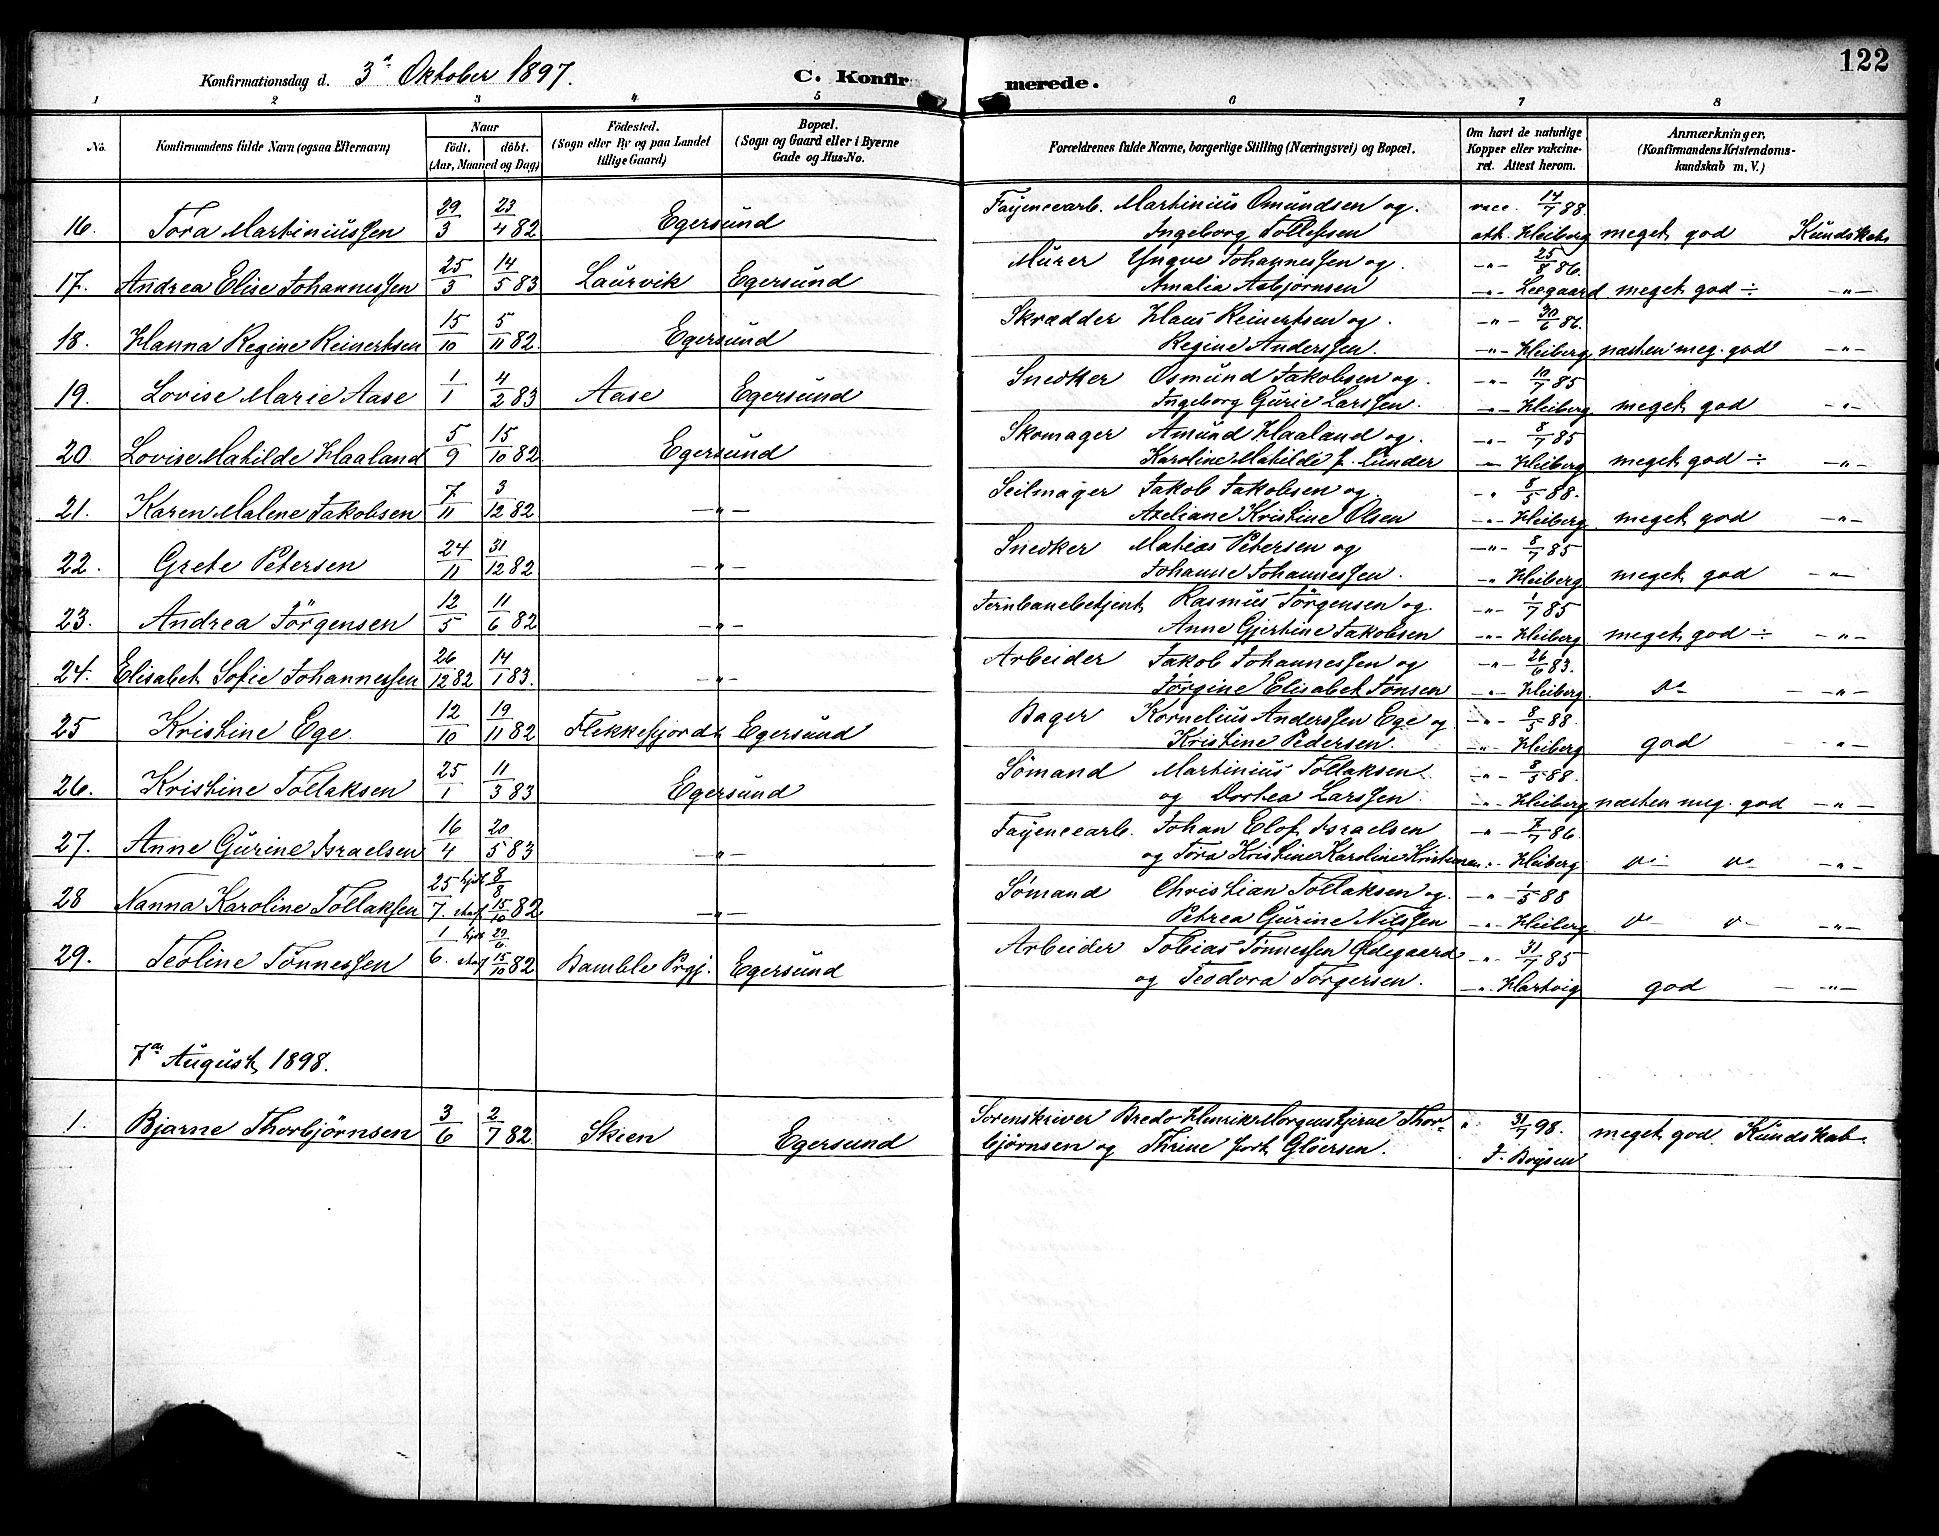 122
Konfirmationsdag d. 3die Oktober 1897. C. Konfirmerede.
1 2 3 4 5 6 7 8
No. Konfirmandens fulde Navn (ogsaa Efternavn) Naar födt. döbt. (Aar, Maaned og Dag) Födested. (Sogn eller By og paa Landet tillige Gaard) Bopæl. (Sogn og Gaard eller i Byerne Gade og Hus-No. Forældrenes fulde Navne, borgerlige Stilling (Næringsvei) og Bopæl. Om havt de naturlige Kopper eller vakcineret. Attest herom. Anmærkninger. (Konfirmandens Kristendomskundskab m. V.)
16. Tora Martiniussen 29/3 23/4 82 Egersund Fayencearb. Martinius Omundsen og vacc. 14/7 88.
Ingeborg Tollefsen att. Heiberg meget god Kundskab
17. Andrea Elise Johannessen 25/3 14/5 83 Laurvik Egersund Murer Yngve Johannessen og -"- 25/8 86.
Amalia Asbjørnsen -"- Leegaard meget god ÷ -"-
18. Hanna Regine Reinertsen 15/10 5/11 82. Egersund Skrædder Hans Reinertsen og -"- 30/6 86.
Regine Anderssen. -"- Heiberg næsten meg. god -"-
19. Lovise Marie Aase 1/1 4/2 83 Aase Egersund Snedker Osmund Jakobsen og -"- 10/7 85
Ingeborg Gurie Larssen. -"- Heiberg meget god -"-
20. Lovise Mathilde Haaland 5/9 15/10 82 Egersund Skomager Amund Haaland og -"- 8/7 85
Karoline Mathilde f. Lunder -"- Heiberg meget god ÷ -"-
21. Karen Malene Jakobsen 7/11 3/12 82 -"- Seilmager Jakob Jakobsen og -"- 8/5 88.
Axeliane Kristine Olsen -"- Heiberg meget god -"-
22. Grete Petersen 24/11 31/12 82 -"- Snedker Matias Petersen og -"- 8/7 85
Johanne Johannessen. -"- Heiberg meget god -"-
23. Andrea Jörgensen 12/5 11/6 82 -"- Jernbanebetjent Rasmus Jörgensen og -"- 1/7 85
Anne Gjertine Jakobsen -"- Heiberg meget god ÷ -"-
24. Elisabet Sofie Johannessen 26/12 82 14/1 83. -"- Arbeider Jakob Johannessen og -"- 26/6 83.
Jørgine Elisabet Jonsen -"- Heiberg. do -"-
25 Kristine Ege. 12/10 19/11 82 Flekkefjord Egersund Bager Kornelius Anderssen Ege og -"- 8/5 88.
Kristine Pedersen. -"- Heiberg god -"-
26. Kristine Tollaksen 25/1 11/3 83 Egersund Sømand Martinius Tollaksen -"- 8/5 88.
og Dortea Larssen. -"- Heiberg næsten meg. god -"-
27. Anne Gurine Israelsen 16/4 20/5 83 -"- Fayencearb. Johan Elof Israelsen -"- 7/7 86.
og Tora Kristine Karoline Kristensen -"- Heiberg do do -"-
28 Nanna Karoline Tollaksen 25/7. hjdt 8/8 stadf 15/10 82 -"- Sømand Christian Tollaksen og -"- 1/5 88
Petrea Gurine Nilssen -"- Heiberg do do -"-
29. Teoline Tønnessen 1/6. hjdt 29/6 stadf 15/10 82 Bamble Prgj. Egersund Arbeider Tobias Tønnessen Ødegaard -"- 31/7 85
og Teodora Torgersen. -"- Hartvig god -"-
7de August 1898.
1. Bjarne Thorbjørnsen 3/6 2/7 82. Skien Egersund Sorenskriver Bredo Henrik Morgenstjerne Thor- " 31/7 98. meget god. Kundskab
bjørnsen og Thrine født Gløersen. " J. Boysen